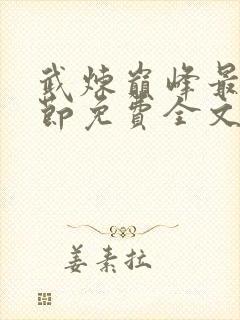 武炼巅峰最
节免费全文
姜素拉